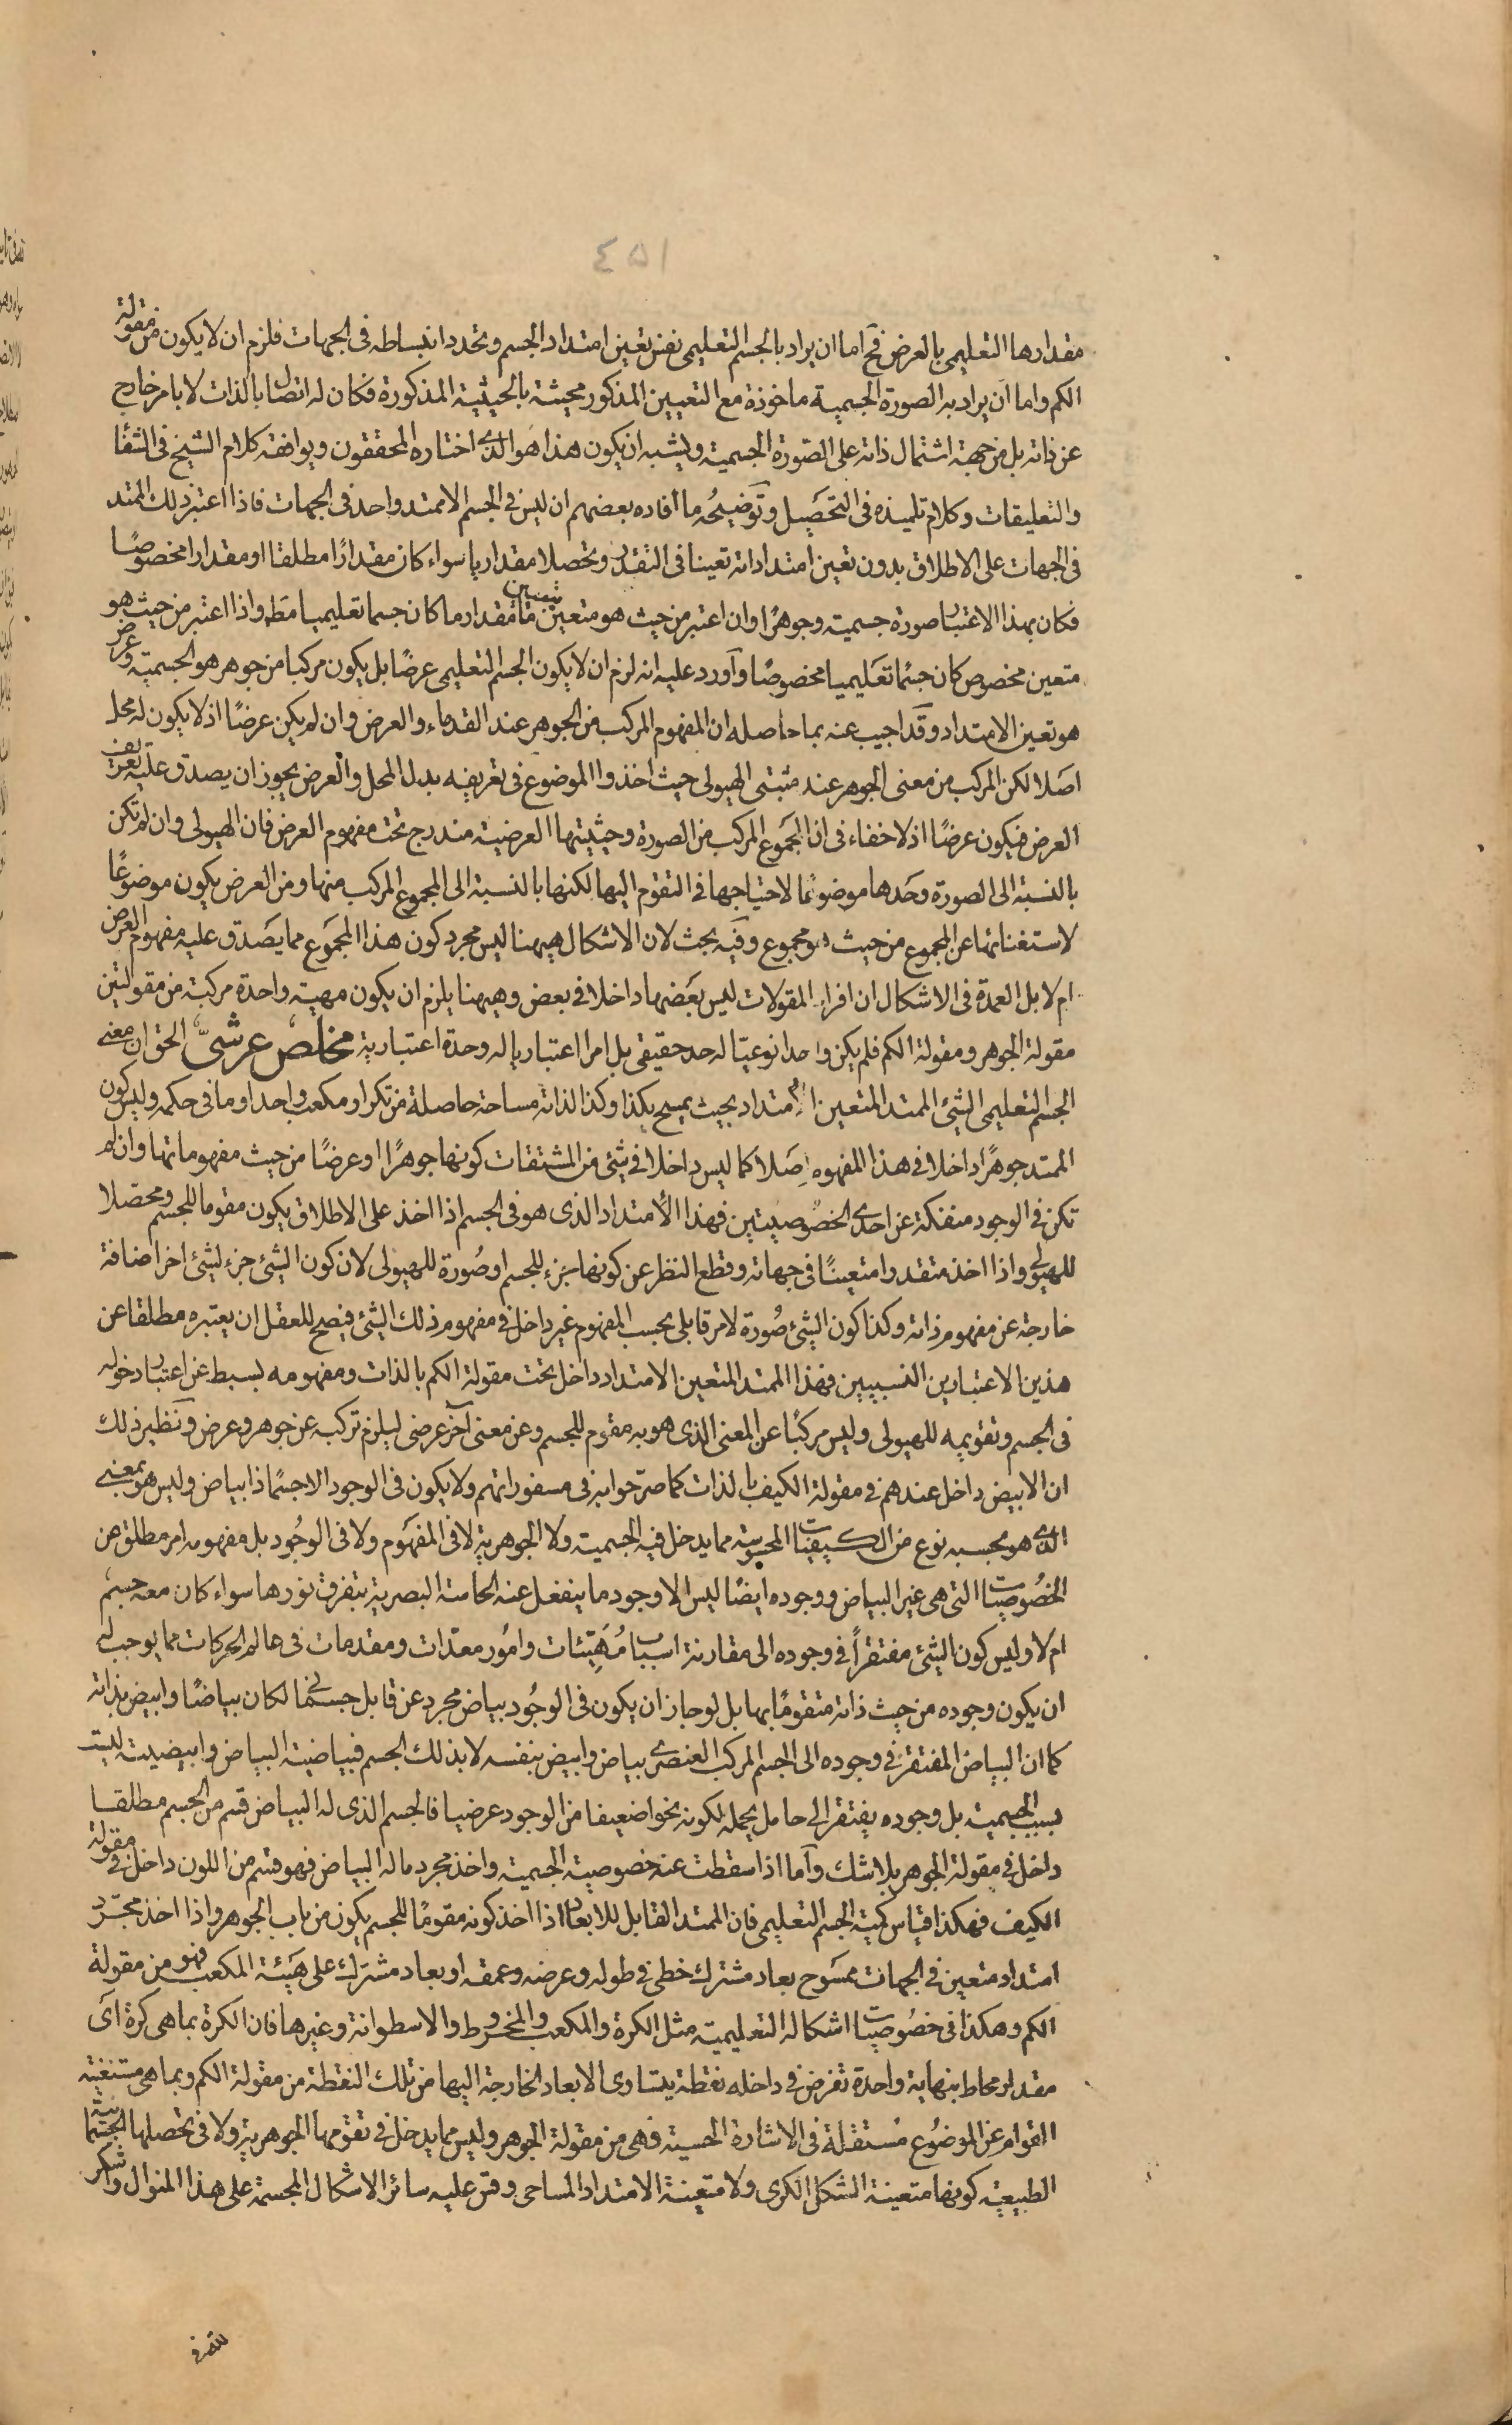 ٤٥١
مقدارها التعليمى بالعرض فح اما ان يراد بالجسم التعليمى نفس تعين امتداد الجسم وتحدد انبساطه فى الجهات فلزم ان لا يكون من مقولة
الكم واما ان يراد به الصورة الجسمية ماخوذة مع التعيين المذكور محيثة بالحيثية المذكورة فكان له اتصال بالذات لا بامر خارج
عن ذاته بل من جهة اشتمال ذاته على الصورة الجسمية ويشبه ان يكون هذا هو الذى اختاره المحققون ويوافقه كلام الشيخ فى الشفا
والتعليقات وكلام تلميذه فى التحصيل وتوضيحه ما افاده بعضهم ان ليس فى الجسم الا ممتد واحد فى الجهات فاذا اعتبر ذلك الممتد
فى الجهات على الاطلاق بدون تعين امتداداته تعينا فى التقدر وتحصلا مقداريا سواء كان مقدارا مطلقا او مقدارا مخصوصا
فكان بهذا الاعتبار صورة جسمية وجوهرا وان اعتبر من حيث هو متعين بتعين ما مقدار ما كان جسما تعليميا مط واذا اعتبر من حيث هو
متعين مخصوص كان جسما تعليميا مخصوصا وآورد عليه انه لزم ان لا يكون الجسم التعليمى عرضا بل يكون مركبا من جوهر هو الجسمية وعرض
هو تعين الامتداد وقد اجيب عنه بما حاصله ان المفهوم المركب من الجوهر عند القدماء والعرض وان لم يكن عرضا اذ لا يكون له محل
اصلا لكن المركب من معنى الجوهر عند مثبتى الهيولى حيث اخذوا الموضوع فى تعريفه بدل المحل والعرض يجوز ان يصدق عليه تعريف
العرض فيكون عرضا اذ لا خفاء فى ان المجموع المركب من الصورة وحيثيتها العرضية مندرج تحت مفهوم العرض فان الهيولى وان لم تكن
بالنسبة الى الصورة وحدها موضوعا لاحتياجها فى التقوم اليها لكنها بالنسبة الى المجموع المركب منها ومن العرض يكون موضوعا
لاستغنائها عن المجموع من حيث هو مجموع وفيه بحث لان الاشكال هيهنا ليس مجرد كون هذا المجموع مما يصدق عليه مفهوم العرض
ام لا بل العمدة فى الاشكال ان افراد المقولات ليس بعضها داخلا فى بعض وهيهنا يلزم ان يكون مهية واحدة مركبة من مقولتين
مقولة الجوهر ومقولة الكم فلم يكن واحدا نوعيا له حد حقيقى بل امرا اعتباريا له وحدة اعتبارية مخلص عرشىّ الحق ان معنى
الجسم التعليمى الشئ الممتد المتعين الامتداد بحيث يمسح بكذا وكذا لذاته مساحة حاصلة من تكرار مكعب واحد او ما فى حكمه وليس كون
الممتد جوهرا داخلا فى هذا المفهوم اصلا كما ليس داخلا فى شئ من المشتقات كونها جوهرا او عرضا من حيث مفهوماتها وان لم
تكن فى الوجود منفكة عن احدى الخصوصيتين فهذا الامتداد الذى هو فى الجسم اذا اخذ على الاطلاق يكون مقوما للجسم ومحصلا
للهيولى واذا اخذ متقدرا متعينا فى جهاته وقطع النظر عن كونها جزء للجسم او صورة للهيولى لان كون الشئ جزء لشئ اخر اضافة
خارجة عن مفهوم ذاته وكذا كون الشئ صورة لامر قابلى بحسب المفهوم غير داخل فى مفهوم ذلك الشئ فيصح للعقل ان يعتبره مطلقا عن
هذين الاعتبارين النسبيين فهذا الممتد المتعين الامتداد داخل تحت مقولة الكم بالذات ومفهومه بسيط عن اعتبار دخوله
فى الجسم وتقويمه للهيولى وليس مركبا عن المعنى الذى هو به مقوم للجسم وعن معنى آخر عرضى ليلزم تركبه عن جوهر وعرض ونظير ذلك
ان الابيض داخل عندهم فى مقولة الكيف بالذات كما صرّحوا به فى مسفوراتهم ولا يكون فى الوجود الا جسما ذا بياض وليس هو بمعنى
الذى هو بحسبه نوع من الكيفيات المحسوسة مما يدخل فيه الجسمية ولا الجوهرية لا فى المفهوم ولا فى الوجود بل مفهومه امر مطلق عن
الخصوصيات التى هى غير البياض ووجوده ايضا ليس الا وجود ما ينفعل عنه الحاسة البصرية بتفرق نورها سواء كان معه جسم
ام لا وليس كون الشئ مفتقراً فى وجوده الى مقارنة اسباب مُهَيّئات وامور معدّات ومقدمات فى عالم الحركات مما يوجب
ان يكون وجوده من حيث ذاته متقوما بها بل لو جاز ان يكون فى الوجود بياض مجرد عن قابل جسمانى لكان بياضا وابيض بذاته
كما ان البياض المفتقر فى وجوده الى الجسم المركب العنصرى بياض وابيض بنفسه لا بذلك الجسم فبياضية البياض وابيضيته ليست
بسبب الجسمية بل وجوده يفتقر الى حامل يحمله لكونه نحوا ضعيفا من الوجود عرضيا فالجسم الذى له البياض قسم من الجسم مطلقا
داخل فى مقولة الجوهر بلا شك وآما اذا سقطت عنه خصوصية الجسمية واخذ مجرد ما له البياض فهو قسم من اللون داخل فى مقولة
الكيف فهكذا قياس كمية الجسم التعليمى فان الممتد القابل للابعاد اذا اخذ كونه مقوما للجسم يكون من باب الجوهر واذا اخذ مجرّد
امتداد متعين فى الجهات ممسوح بعاد مشترك خطى فى طوله وعرضه وعمقه او بعاد مشترك على هيئة المكعب فهو من مقولة
الكم وهكذا فى خصوصيات اشكاله التعليمية مثل الكرة والمكعب والمخروط والاسطوانة وغيرها فان الكرة بما هى كرة اى
مقدار محاط بنهاية واحدة تفرض فى داخله نقطة يتساوى الابعاد الخارجة اليها من تلك النقطة من مقولة الكم وبما هى مستغنية
القوام عن الموضوع مستقلة فى الاشارة الحسية فهى من مقولة الجوهر وليس مما يدخل فى تقومها الجوهرية ولا فى تحصلها الجسمانية
الطبيعية كونها متعينة الشكل الكرى ولا متعينة الامتداد المساحى وقس عليه سائر الاشكال المجسمة على هذا المنوال